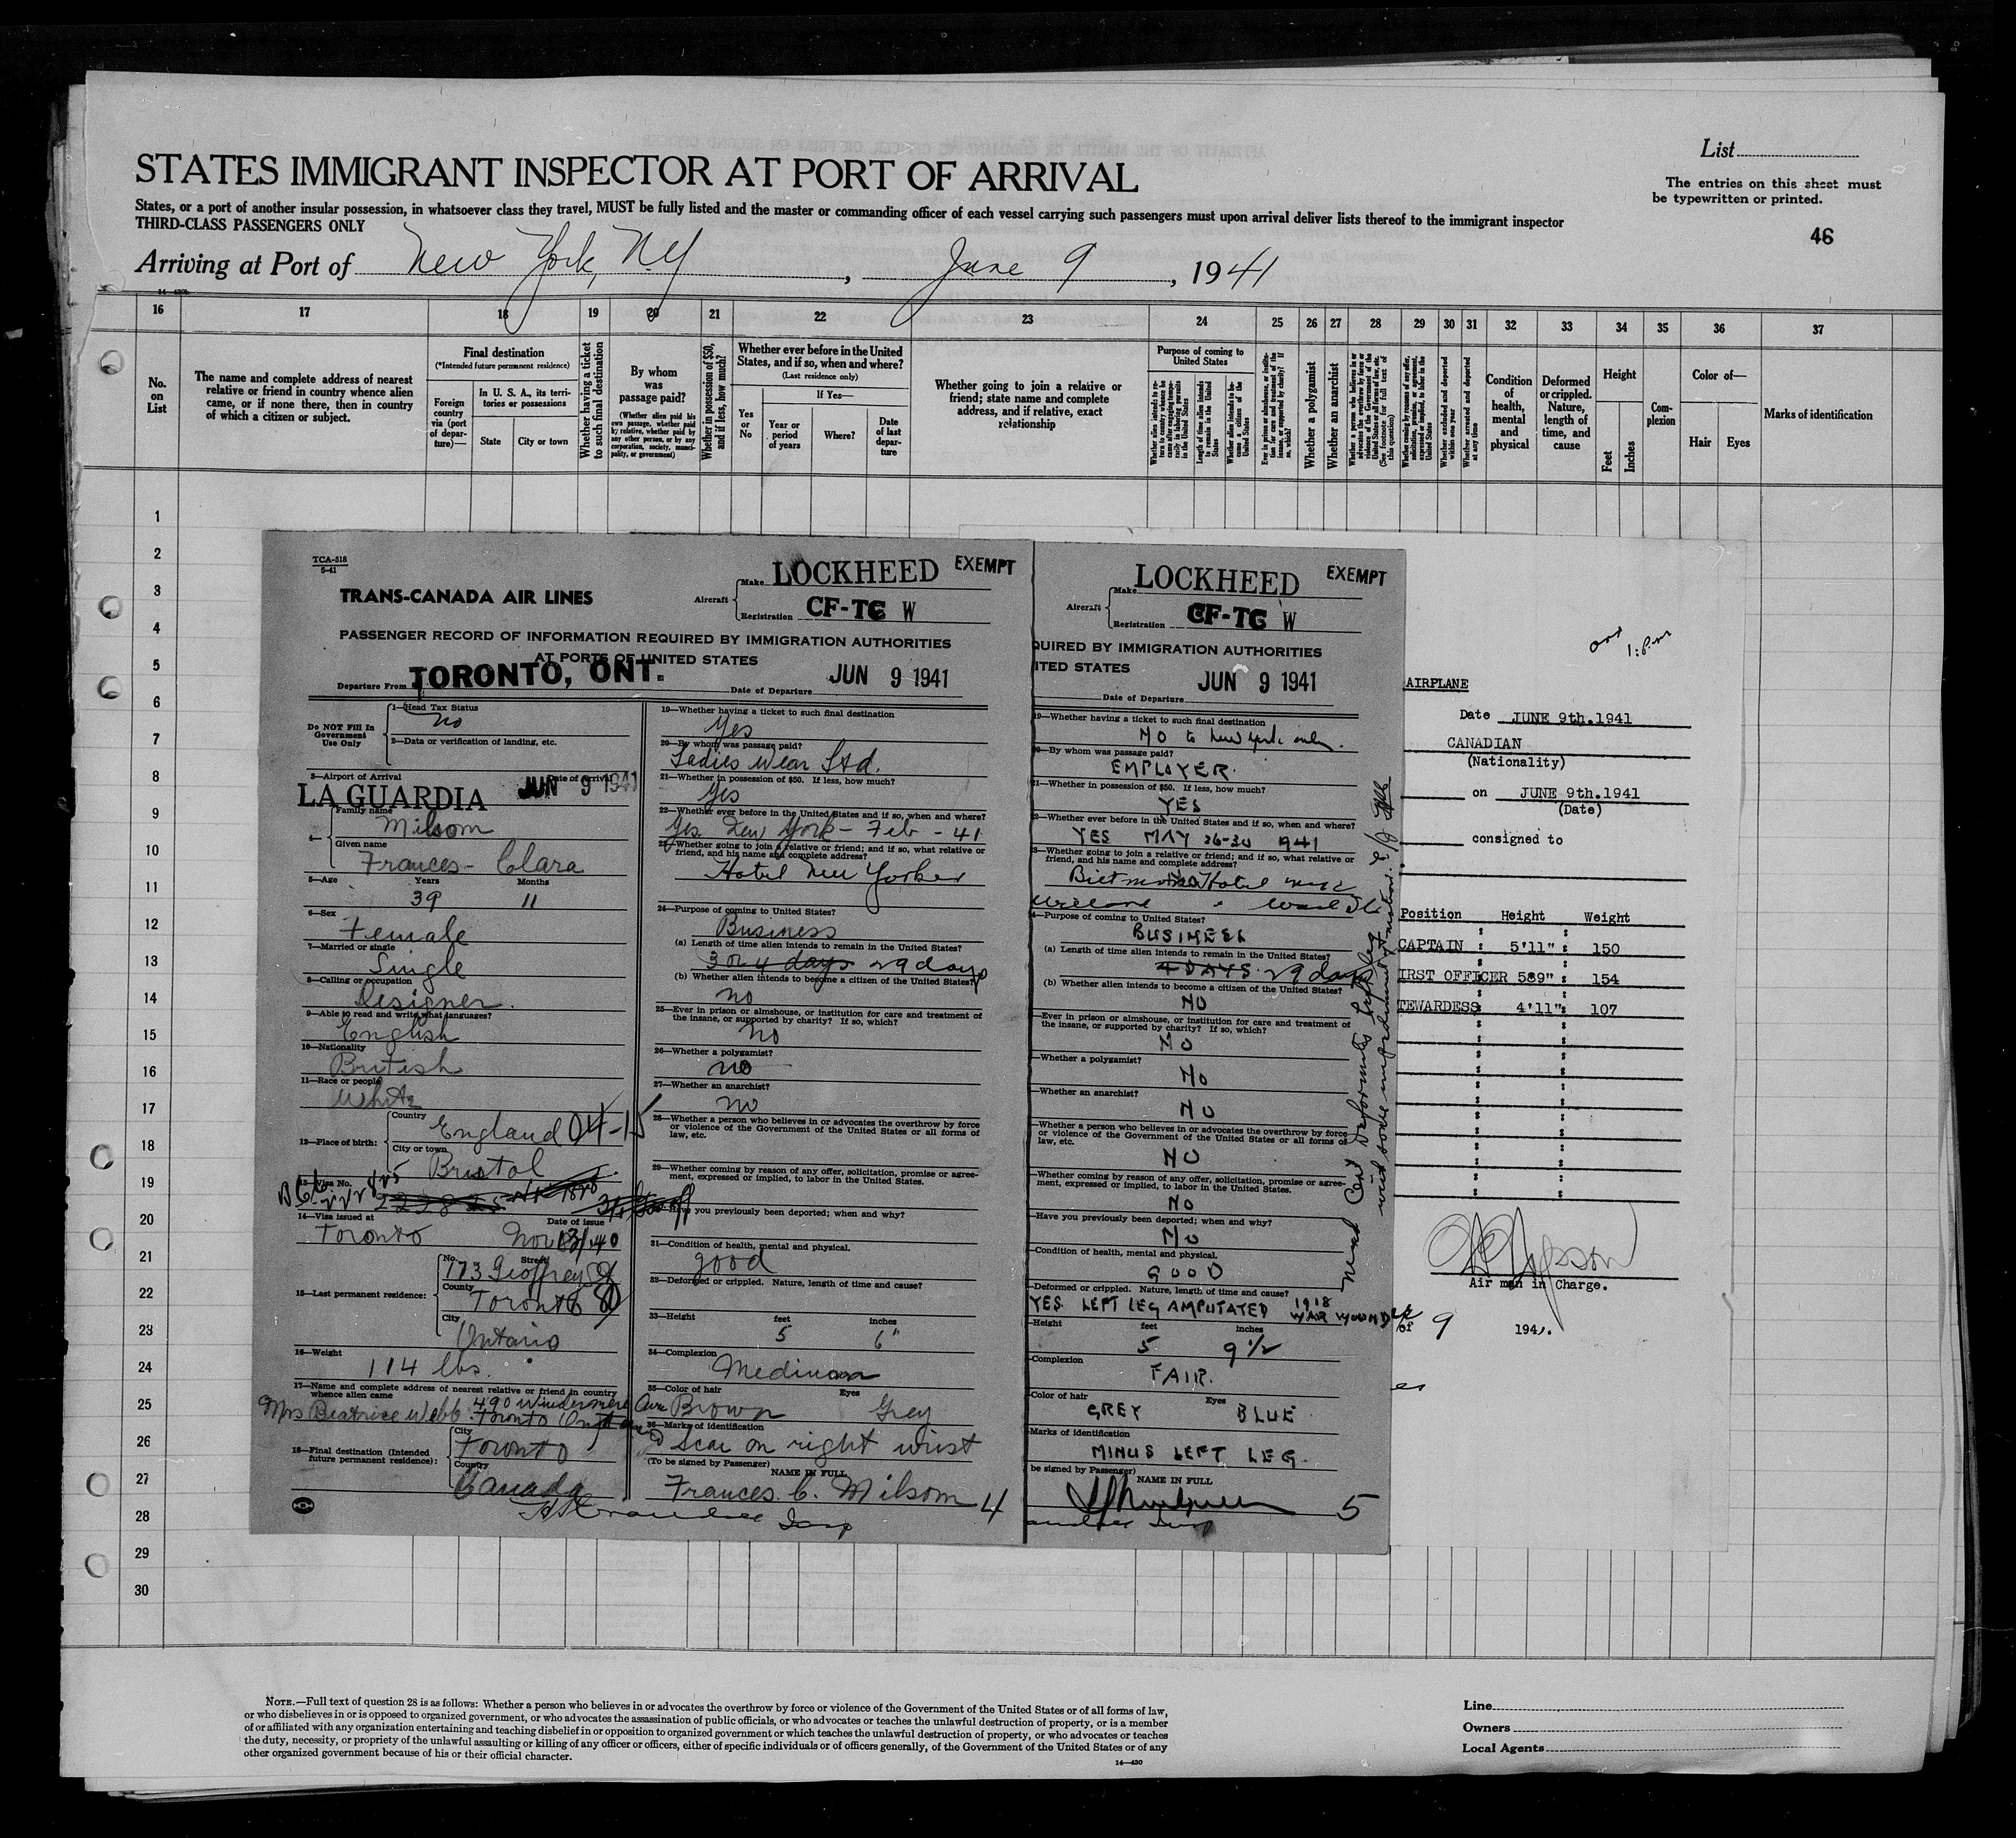 List
The entries on this sheet must
be typewritten or printed.
STATES IMMIGRANT INSPECTOR AT PORT OF ARRIVAL
States, or a port of another insular possession, in whatsoever class they travel, MUST be fully listed and the master or commanding officer of each vessel carrying such passengers must upon arrival deliver lists thereof to the immigrant inspector
THIRD-CLASS PASSENGERS ONLY
46
Arriving at Port of New York, N.Y , June 9 , 1941
16 17 18 19 20 21 22 23 24 25 26 27 28 29 30 31 32 33 34 35 36 37
No. on List
The name and complete address of nearest relative or friend in country whence alien came, or if none there, then in country of which a citizen or subject.
Final destination
(*Intended future permanent residence)
Foreign country via (port of departure)—
In U. S. A., its territories or possessions
State
City or town
Whether having a ticket to such final destination
By whom was passage paid?
(Whether alien paid his own passage, whether paid by relative, whether paid by any other person, or by any corporation, society, municipality, or government)
Whether in possession of $50, and if less, how much?
Whether ever before in the United States, and if so, when and where?
(Last residence only)
Yes or No
If Yes—
Year or period of years
Where?
Date of last departure
Whether going to join a relative or friend; state name and complete address, and if relative, exact relationship
Purpose of coming to United States
Length of time alien intends to remain in the United States
Whether alien intends to become a citizen of the United States
Whether a polygamist
Whether an anarchist
Whether arrested and deported at any time
Condition of health, mental and physical
Deformed or crippled. Nature, length of time, and cause
Height
Feet
Inches
Complexion
Color of—
Hair
Eyes
Marks of identification
1
2
3
4
5
6
7
8
9
10
11
12
13
14
15
16
17
18
19
20
21
22
23
24
25
26
27
28
29
30
TCA-518
5-41
TRANS-CANADA AIR LINES
Aircraft
Make LOCKHEED EXEMPT
Registration CF-TC W
PASSENGER RECORD OF INFORMATION REQUIRED BY IMMIGRATION AUTHORITIES
AT PORTS OF UNITED STATES
Departure From TORONTO, ONT.
Date of Departure JUN 9 1941
Do NOT Fill In
Government
Use Only
1—Head Tax Status
no
2—Data or verification of landing, etc.
3—Airport of Arrival
Date of Arrival
LA GUARDIA JUN 9 1941
4—
Family name
Milsom
Given name
Frances - Clara
5—Age Years Months
39 11
6—Sex
Female
7—Married or single
Single
8—Calling or occupation
Designer.
9—Able to read and write what languages?
English
10—Nationality
British
11—Race or people
White
12—Place of birth:
Country
England 04-15
City or town
Bristol
13—Visa No.
14—Visa issued at
Date of issue
Toronto Nov 13/40
15—Last permanent residence:
No. Street
173 Geoffrey St
County
Toronto
City
Ontario
16—Weight
114 lbs.
17—Name and complete address of nearest relative or friend in country
whence alien came
Mrs Beatrice Webb 490 Windermere Ave
Toronto
18—Final destination (Intended
future permanent residence):
City
Toronto
Country
Canada
19—Whether having a ticket to such final destination
Yes
20—By whom was passage paid?
Ladies Wear Ltd.
21—Whether in possession of $50. If less, how much?
Yes
22—Whether ever before in the United States and if so, when and where?
Yes. New York - Feb - 41
23—Whether going to join a relative or friend; and if so, what relative or
friend, and his name and complete address?
Hotel New Yorker
24—Purpose of coming to United States?
Business
(a) Length of time alien intends to remain in the United States?
3 or 4 days 29 days
(b) Whether alien intends to become a citizen of the United States?
no
25—Ever in prison or almshouse, or institution for care and treatment of
the insane, or supported by charity? If so, which?
no
26—Whether a polygamist?
no
27—Whether an anarchist?
no
28—Whether a person who believes in or advocates the overthrow by force
or violence of the Government of the United States or all forms of
law, etc.
29—Whether coming by reason of any offer, solicitation, promise or agree-
ment, expressed or implied, to labor in the United States.
Have you previously been deported; when and why?
31—Condition of health, mental and physical.
good
32—Deformed or crippled. Nature, length of time and cause?
33—Height feet inches
5 6"
34—Complexion
Medium
35—Color of hair Eyes
Brown Grey
36—Marks of identification
Scar on right wrist
(To be signed by Passenger)
NAME IN FULL
Frances. C. Milsom 4
Insp
Aircraft
Make LOCKHEED EXEMPT
Registration CF-TC W
QUIRED BY IMMIGRATION AUTHORITIES
ITED STATES
JUN 9 1941
Date of Departure
19—Whether having a ticket to such final destination
NO to New York only.
20—By whom was passage paid?
EMPLOYER.
21—Whether in possession of $50. If less, how much?
YES
2—Whether ever before in the United States and if so, when and where?
YES MAY 26-30 1941
3—Whether going to join a relative or friend; and if so, what relative or
friend, and his name and complete address?
Hotel
4—Purpose of coming to United States?
BUSINESS
(a) Length of time alien intends to remain in the United States?
4 DAYS. 29 days
(b) Whether alien intends to become a citizen of the United States?
NO
—Ever in prison or almshouse, or institution for care and treatment of
the insane, or supported by charity? If so, which?
NO
—Whether a polygamist?
NO
—Whether an anarchist?
NO
—Whether a person who believes in or advocates the overthrow by force
or violence of the Government of the United States or all forms of
law, etc.
NO
Whether coming by reason of any offer, solicitation, promise or agree-
ment, expressed or implied, to labor in the United States.
NO
—Have you previously been deported; when and why?
NO
—Condition of health, mental and physical.
GOOD
—Deformed or crippled. Nature, length of time and cause?
YES LEFT LEG AMPUTATED 1918 WAR WOUND
—Height feet inches
5 9 1/2
—Complexion
FAIR.
—Color of hair Eyes
GREY BLUE
—Marks of identification
MINUS LEFT LEG.
be signed by Passenger)
NAME IN FULL
5
Insp
1:P.M
AIRPLANE
Date JUNE 9th.1941
CANADIAN
(Nationality)
on JUNE 9th.1941
(Date)
consigned to
Position Height Weight
CAPTAIN : 5'11" : 150
IRST OFFICER 589" : 154
TEWARDESS: 4'11" : 107
Air man in Charge.
of 9 1941.
NOTE.—Full text of question 28 is as follows: Whether a person who believes in or advocates the overthrow by force or violence of the Government of the United States or of all forms of law,
or who disbelieves in or is opposed to organized government, or who advocates the assassination of public officials, or who advocates or teaches the unlawful destruction of property, or is a member
of or affiliated with any organization entertaining and teaching disbelief in or opposition to organized government or which teaches the unlawful destruction of property, or who advocates or teaches
the duty, necessity, or propriety of the unlawful assaulting or killing of any officer or officers, either of specific individuals or of officers generally, of the Government of the United States or of any
other organized government because of his or their official character.
14—430
Line
Owners
Local Agents